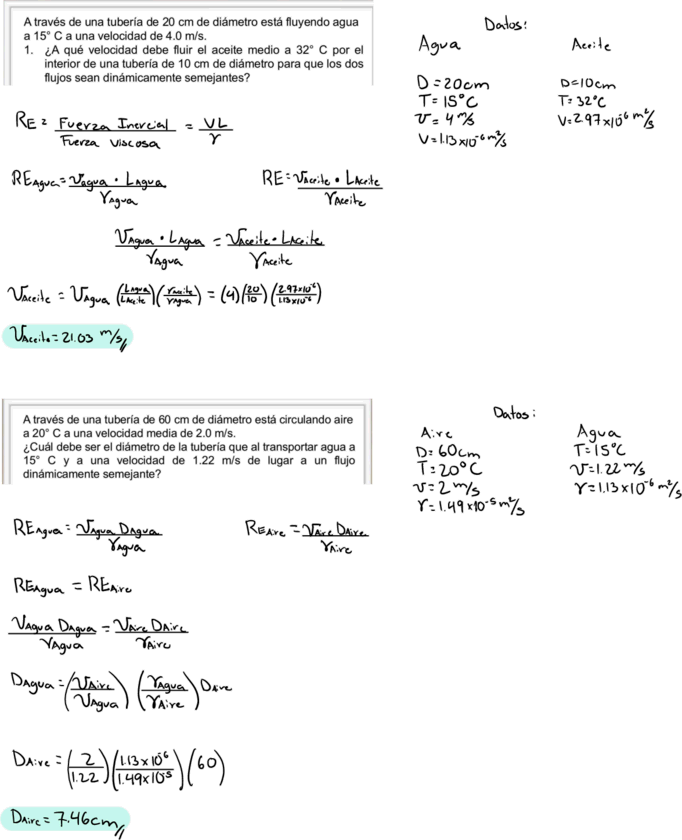 A través de una tubería de 20 cm de diámetro está fluyendo agua
a 15° C a una velocidad de 4.0 m/s.
1. ¿A qué velocidad debe fluir el aceite medio a 32° C por el
interior de una tubería de 10 cm de diámetro para que los dos
flujos sean dinámicamente semejantes?
Datos:
Agua
D = 20cm
T = 15°C
V = 4 m/s
V = 1.13x10^-6 m²/s
Aceite
D = 10cm
T = 32°C
V = 2.97x10^-6 m²/s
RE = Fuerza Inercial / Fuerza Viscosa = VL / γ
REAgua = VAgua · LAgua / γAgua
RE = VAceite · LAceite / γAceite
VAgua · LAgua / γAgua = VAceite · LAceite / γAceite
VAceite = VAgua (LAgua / LAceite) (γAceite / γAgua) = (4) (20/10) (2.97x10^-6 / 1.13x10^-6)
VAceite = 21.03 m/s //
A través de una tubería de 60 cm de diámetro está circulando aire
a 20° C a una velocidad media de 2.0 m/s.
¿Cuál debe ser el diámetro de la tubería que al transportar agua a
15° C y a una velocidad de 1.22 m/s de lugar a un flujo
dinámicamente semejante?
Datos:
Aire
D = 60cm
T = 20°C
V = 2 m/s
γ = 1.49x10^-5 m²/s
Agua
T = 15°C
V = 1.22 m/s
γ = 1.13x10^-6 m²/s
REAgua = VAgua DAgua / γAgua
REAire = VAire DAire / γAire
REAgua = REAire
VAgua DAgua / γAgua = VAire DAire / γAire
DAgua = (VAire / VAgua) (γAgua / γAire) DAire
DAire = (2 / 1.22) (1.13x10^-6 / 1.49x10^-5) (60)
DAire = 7.46cm //